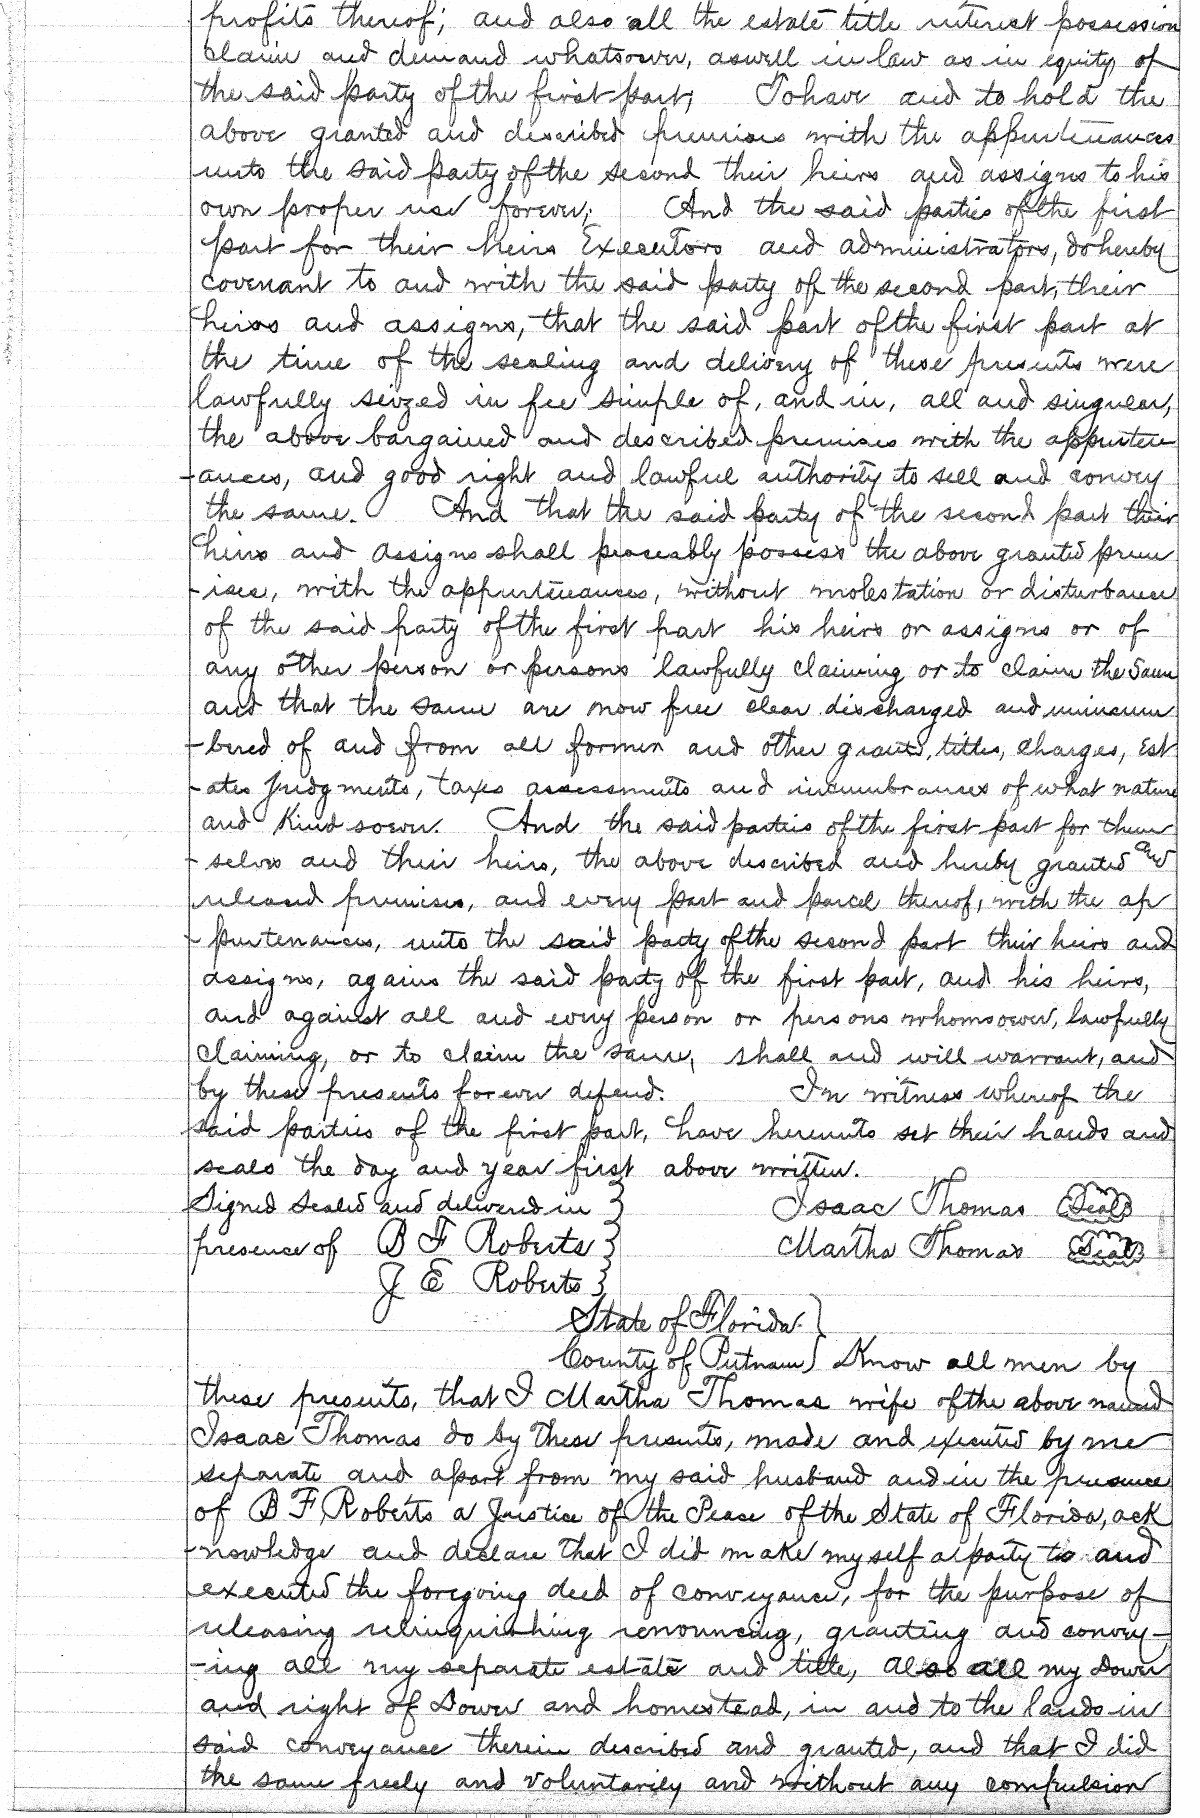 profits thereof; and also all the estate title interest possession
claim and demand whatsoever, aswell in law as in equity of
the said party of the first part; To have and to hold the
above granted and described premises with the appurtenances
unto the said party of the second their heirs and assigns to his
own proper use forever; And the said parties of the first
part for their heirs Executors and administrators, do hereby
covenant to and with the said party of the second part, their
heirs and assigns, that the said part of the first part at
the time of the sealing and delivery of these presents were
lawfully seized in fee simple of, and in, all and singular,
the above bargained and described premises with the appurten
-ances, and good right and lawful authority to sell and convey
the same. And that the said party of the second part their
heirs and assigns shall peaceably possess the above granted prem
-ises, with the appurtenances, without molestation or disturbance
of the said party of the first part his heirs or assigns or of
any other person or persons lawfully claiming or to claim the same
and that the same are now free clear discharged and unincum
-bered of and from all former and other grants, titles, charges, Est
-ates judgments, taxes assessments and incumbrances of what nature
and Kind soever. And the said parties of the first part for them
-selves and their heirs, the above described and hereby granted and
released premises, and every part and parcel thereof, with the ap
-purtenances, unto the said party of the second part their heirs and
assigns, agains the said party of the first part, and his heirs,
and against all and every person or persons whomsoever, lawfully
claiming, or to claim the same, shall and will warrant, and
by these presents forever defend. In witness whereof the
said parties of the first part, have hereunto set their hands and
seals the day and year first above written.
Signed sealed and delivered in } Isaac Thomas (Seal)
presence of B F Roberts } Martha Thomas (Seal)
J E Roberts }
State of Florida }
County of Putnam } Know all men by
these presents, that I Martha Thomas wife of the above named
Isaac Thomas do by these presents, made and executed by me
separate and apart from my said husband and in the presence
of B F Roberts a Justice of the Peace of the State of Florida, ack
-nowledge and declare that I did make myself a party to and
executed the foregoing deed of conveyance, for the purpose of
releasing relinquishing renouncing, granting and convey-
-ing all my separate estate and title, also all my Dower
and right of Dower and homestead, in and to the lands in
said conveyance therein described and granted, and that I did
the same freely and voluntarily and without any compulsion